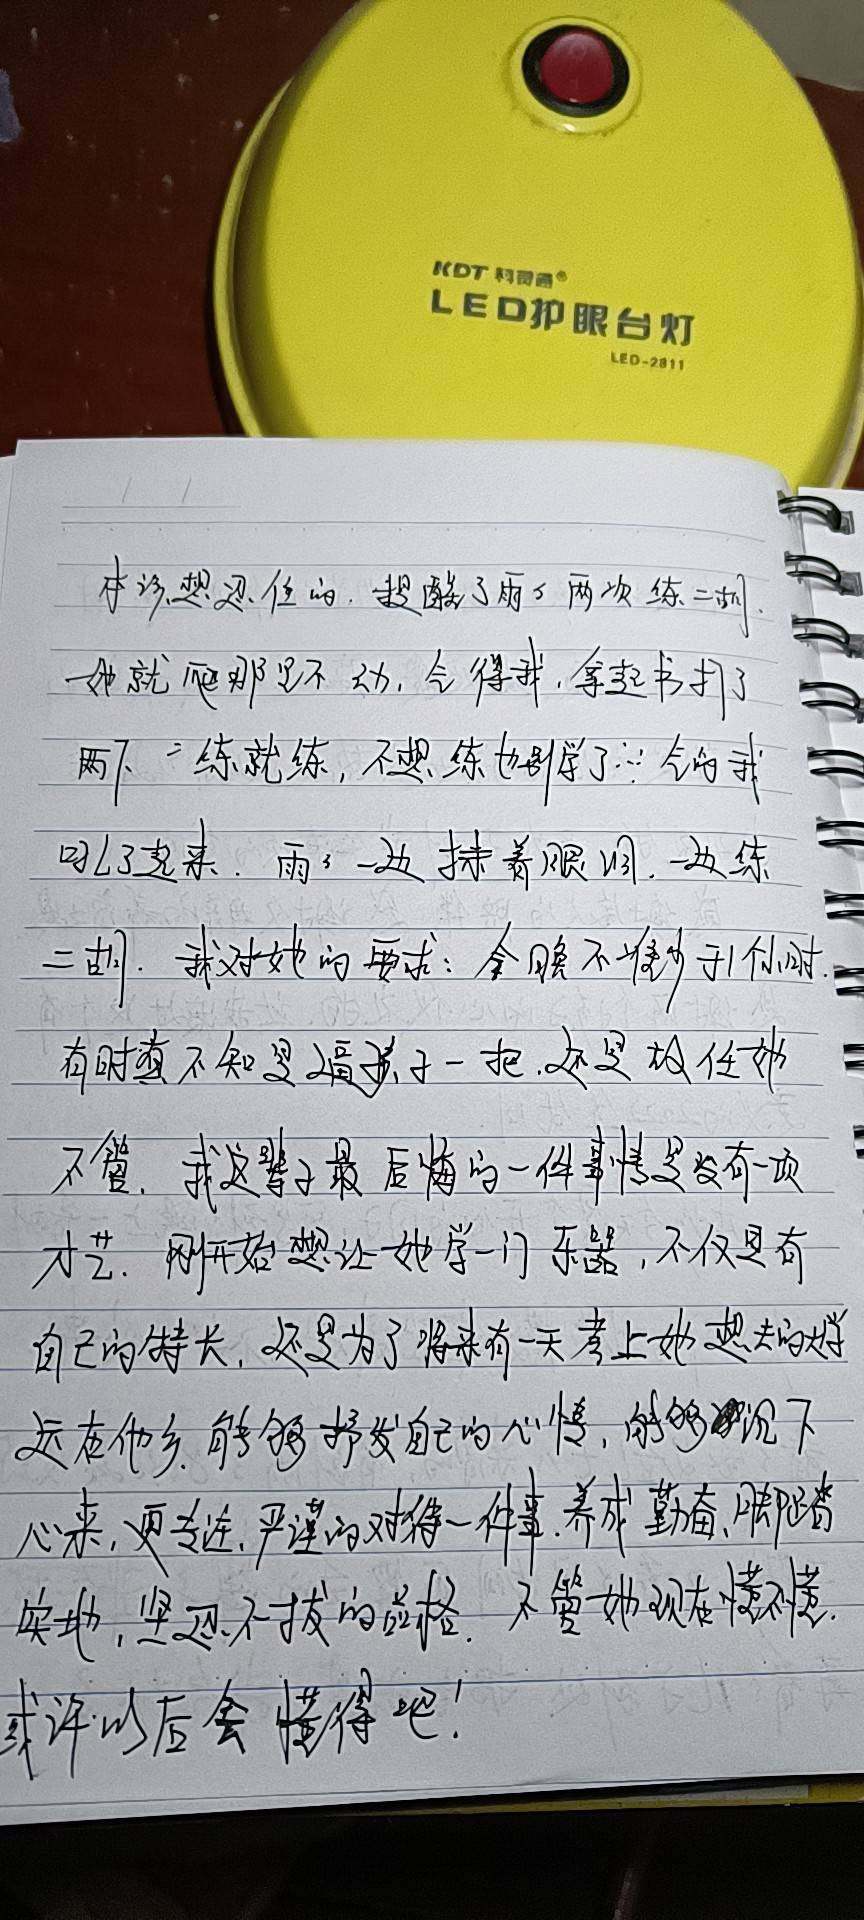 KDT 科灵通®
LED护眼台灯
LED-2811
/ /
本该想忍住的，提醒了雨雨两次练二胡.
她就爬那里不动，气得我，拿起书打了
两下“练就练，不想练也别学了…”气的我
叫了起来. 雨雨一边抹着眼泪，一边练
二胡. 我对她的要求：今晚不能少于1个小时.
有时真不知是逼孩子一把，还是放任她
不管. 我这辈子最后悔的一件事情是没有一项
才艺. 刚开始想让她学一门乐器，不仅是有
自己的特长，还是为了将来有一天考上她想去的大学
远在他乡. 能够抒发自己的心情，能够沉下
心来，更专注，严谨的对待一件事. 养成勤奋、脚踏
实地，坚忍不拔的品格. 不管她现在懂不懂.
或许以后会懂得吧！